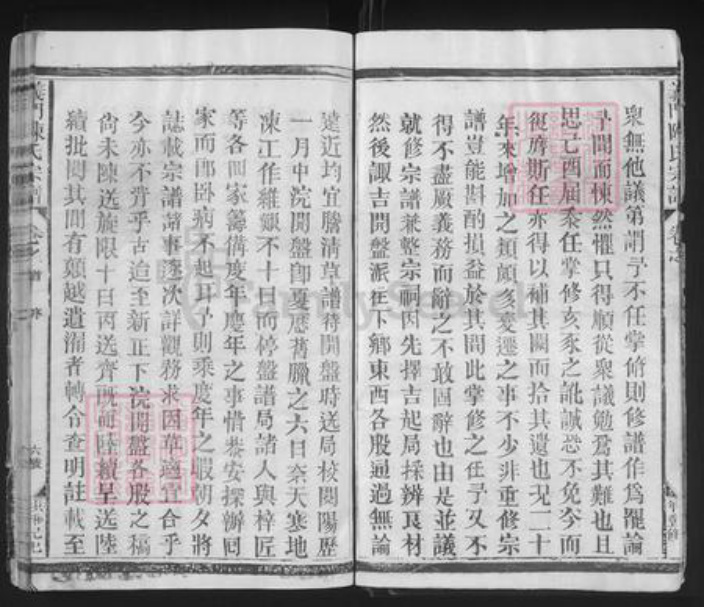 眾無他議第謂予不任掌修則修譜作為罷論
予聞而悚然懼只得順從眾議勉為其難也且
思乙酉屆忝任掌修亥豕之訛誠恐不免今而
復膺斯任亦得以補其闕而拾其遺也況二十
年來增加之類頗多變遷之事不少非重修宗
譜豈能斟酌損益於其間此掌修之任予又不
得不盡厥義務而辭之不敢固辭也由是並議
就修宗譜兼整宗祠因先擇吉起局採辦良材
然後諏吉開盤派往下鄉東西各股通過無論
遠近均宜謄清草譜待開盤時送局校閱陽歷
一月中浣開盤即夏歷舊臘之六日奈天寒地
凍工作維艱不十日而停盤譜局諸人與梓匠
等各回家籌備度年慶年之事惜恭安探辦回
家而即臥病不起耳予則乘度年之暇朝夕將
誌載宗譜諸事逐次詳觀務求因革適宜合乎
今亦不背乎古迨至新正下浣開盤各股之稿
尚未陳送旋限十日內送齊既而陸續呈送陸
續批閱其間有顛越遺漏者轉令查明註載至
義門陳氏宗譜
卷之
義門陳氏宗譜
卷之
首序
六號